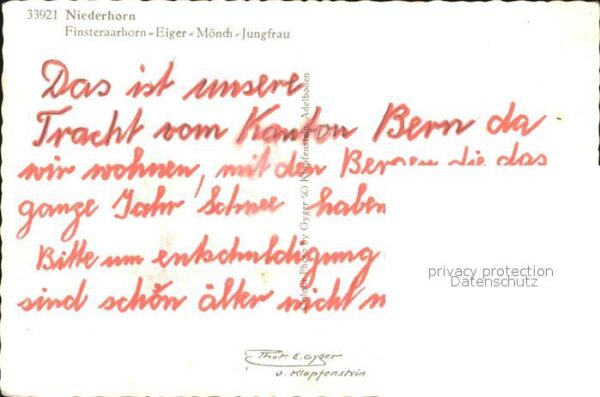 33921 Niederhorn
Finsteraarhorn - Eiger - Mönch - Jungfrau
Das ist unsere
Tracht vom Kanton Bern da
wir wohnen, mit den Bergen die das
ganze Jahr Schnee haben
Bitte um entschuldigung
sind schön älter nicht
Photo by Gyger & Klopfenstein, Adelboden
privacy protection
Datenschutz
Phot. E. Gyger
u. Klopfenstein